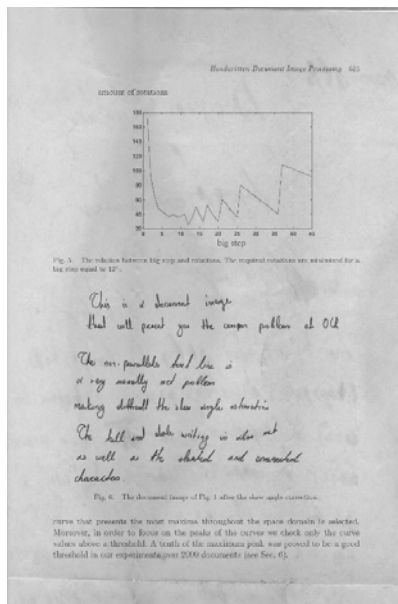 Handwritten Document Image Processing 625
amount of rotations
180
160
140
120
100
80
60
40
20
0 5 10 15 20 25 30 35 40 45
big step
Fig. 5. The relation between big step and rotations. The required rotations are minimized for a
big step equal to 12°.
This is a document image
that will present you the common problem of OCR
The non-parallels text line is
a very usually met problem
making difficult the skew angle estimation
The tall and slide writing is also met
as well as the slanted and connected
characters.
Fig. 6. The document image of Fig. 1 after the skew angle correction.
curve that presents the most maxima throughout the space domain is selected.
Moreover, in order to focus on the peaks of the curves we check only the curve
values above a threshold. A tenth of the maximum peak was proved to be a good
threshold in our experiments over 2000 documents (see Sec. 6).